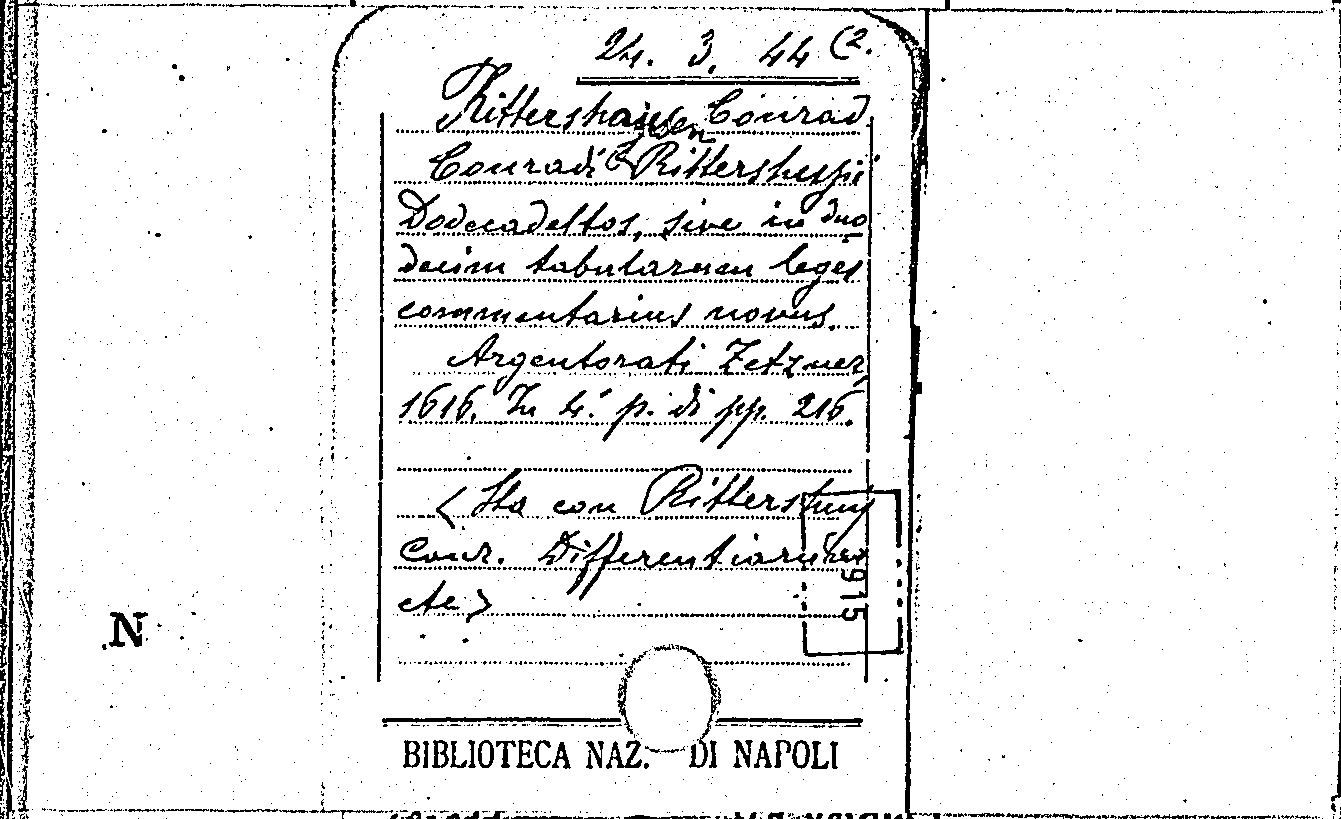 24. 3. 44 (2.
Rittershausen Conrad
Conradi Rittershusii
Dodecadeltos, sive in duo
decim tabularum leges
commentarius novus.
Argentorati Zetzner
1616. In 4.° p. di pp. 216.
< Sta con Rittershusij
Conr. Differentiarum
etc >
915
N
BIBLIOTECA NAZ. DI NAPOLI